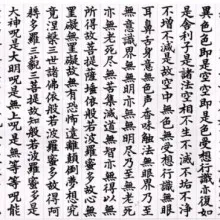 異色色即是空空即是色受想行識亦復如
是舍利子是諸法空相不生不滅不垢不淨
不增不減是故空中無色無受想行識無眼
耳鼻舌身意無色聲香味觸法無眼界乃至
無意識界無無明亦無無明盡乃至無老死
亦無老死盡無苦集滅道無智亦無得以無
所得故菩提薩埵依般若波羅蜜多故心無
罣礙無罣礙故無有恐怖遠離顛倒夢想究
竟涅槃三世諸佛依般若波羅蜜多故得阿
耨多羅三藐三菩提故知般若波羅蜜多是大
神呪是大明呪是無上呪是無等等呪能